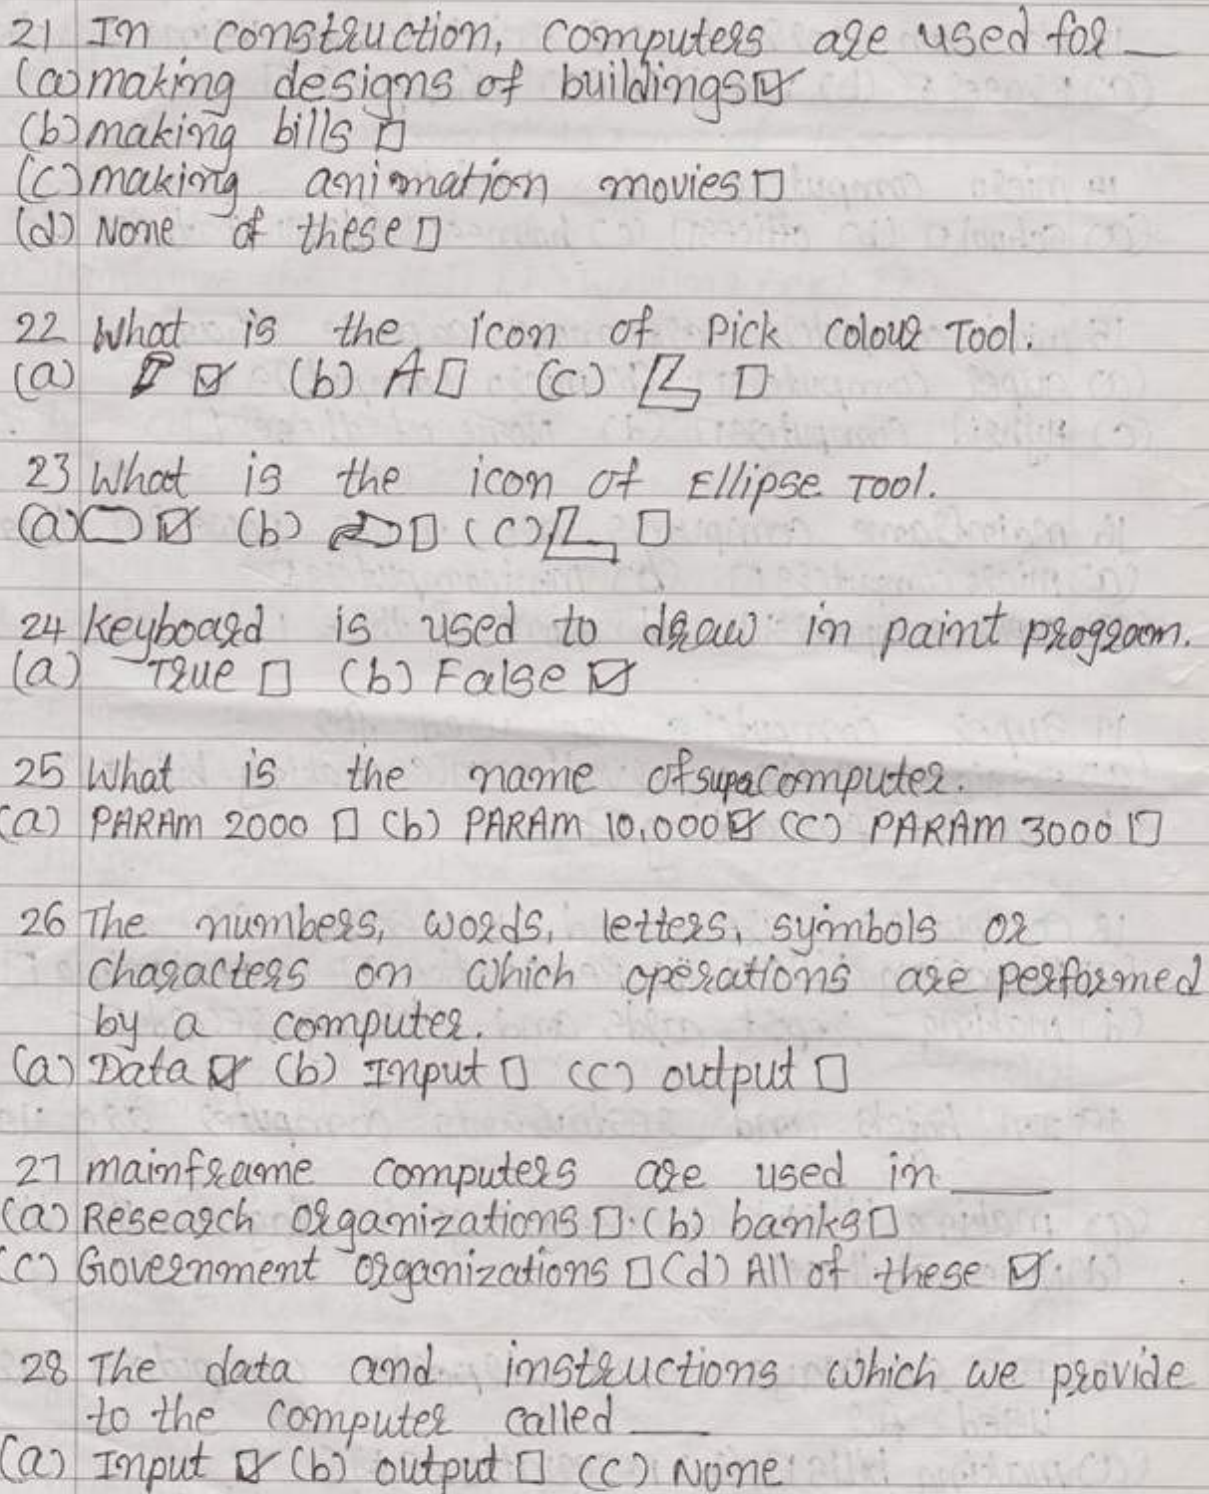 21 In construction, computers are used for __
(a) making designs of buildings ☑
(b) making bills ☐
(c) making animation movies ☐
(d) None of these ☐
22 What is the icon of Pick colour Tool.
(a) ☑ (b) A ☐ (c) ☐
23 What is the icon of Ellipse Tool.
(a) ☑ (b) ☐ (c) ☐
24 keyboard is used to draw in paint program.
(a) True ☐ (b) False ☑
25 What is the name of supercomputer.
(a) PARAM 2000 ☐ (b) PARAM 10,000 ☑ (c) PARAM 3000 ☐
26 The numbers, words, letters, symbols or
characters on which operations are performed
by a computer.
(a) Data ☑ (b) Input ☐ (c) output ☐
27 mainframe computers are used in ____
(a) Research organizations ☐. (b) banks ☐
(c) Government organizations ☐ (d) All of these ☑.
28 The data and instructions which we provide
to the computer called ____
(a) Input ☑ (b) output ☐ (c) None